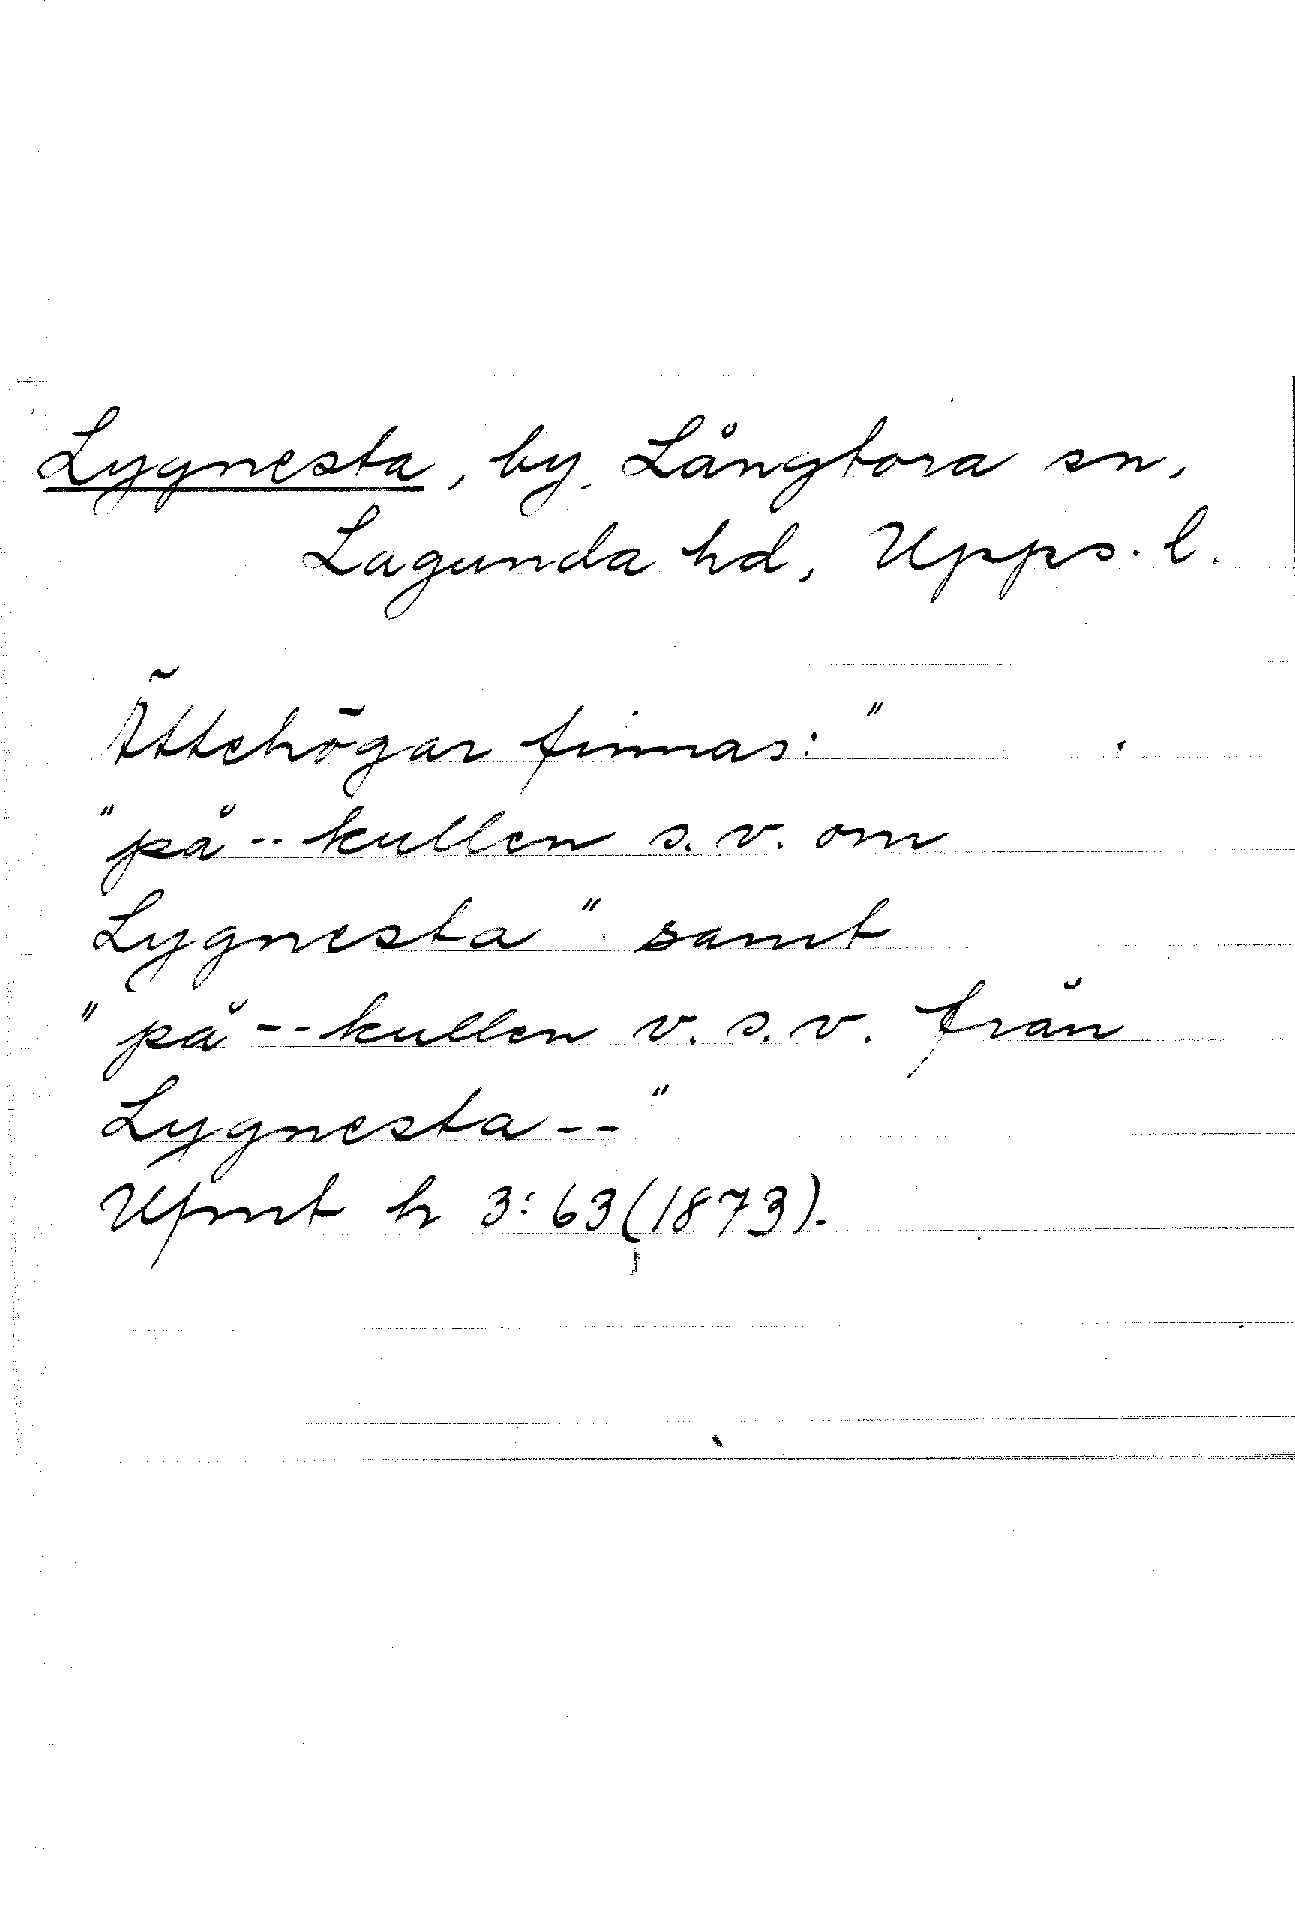 Lygnesta, by, Långtora sn,
Lagunda hd, Upps. l.
Ättehögar finnas:"
"på -- kullen s.v. om
Lygnesta" samt
"på -- kullen v.s.v. från
Lygnesta -- "
Ufmt h 3:63 (1873).